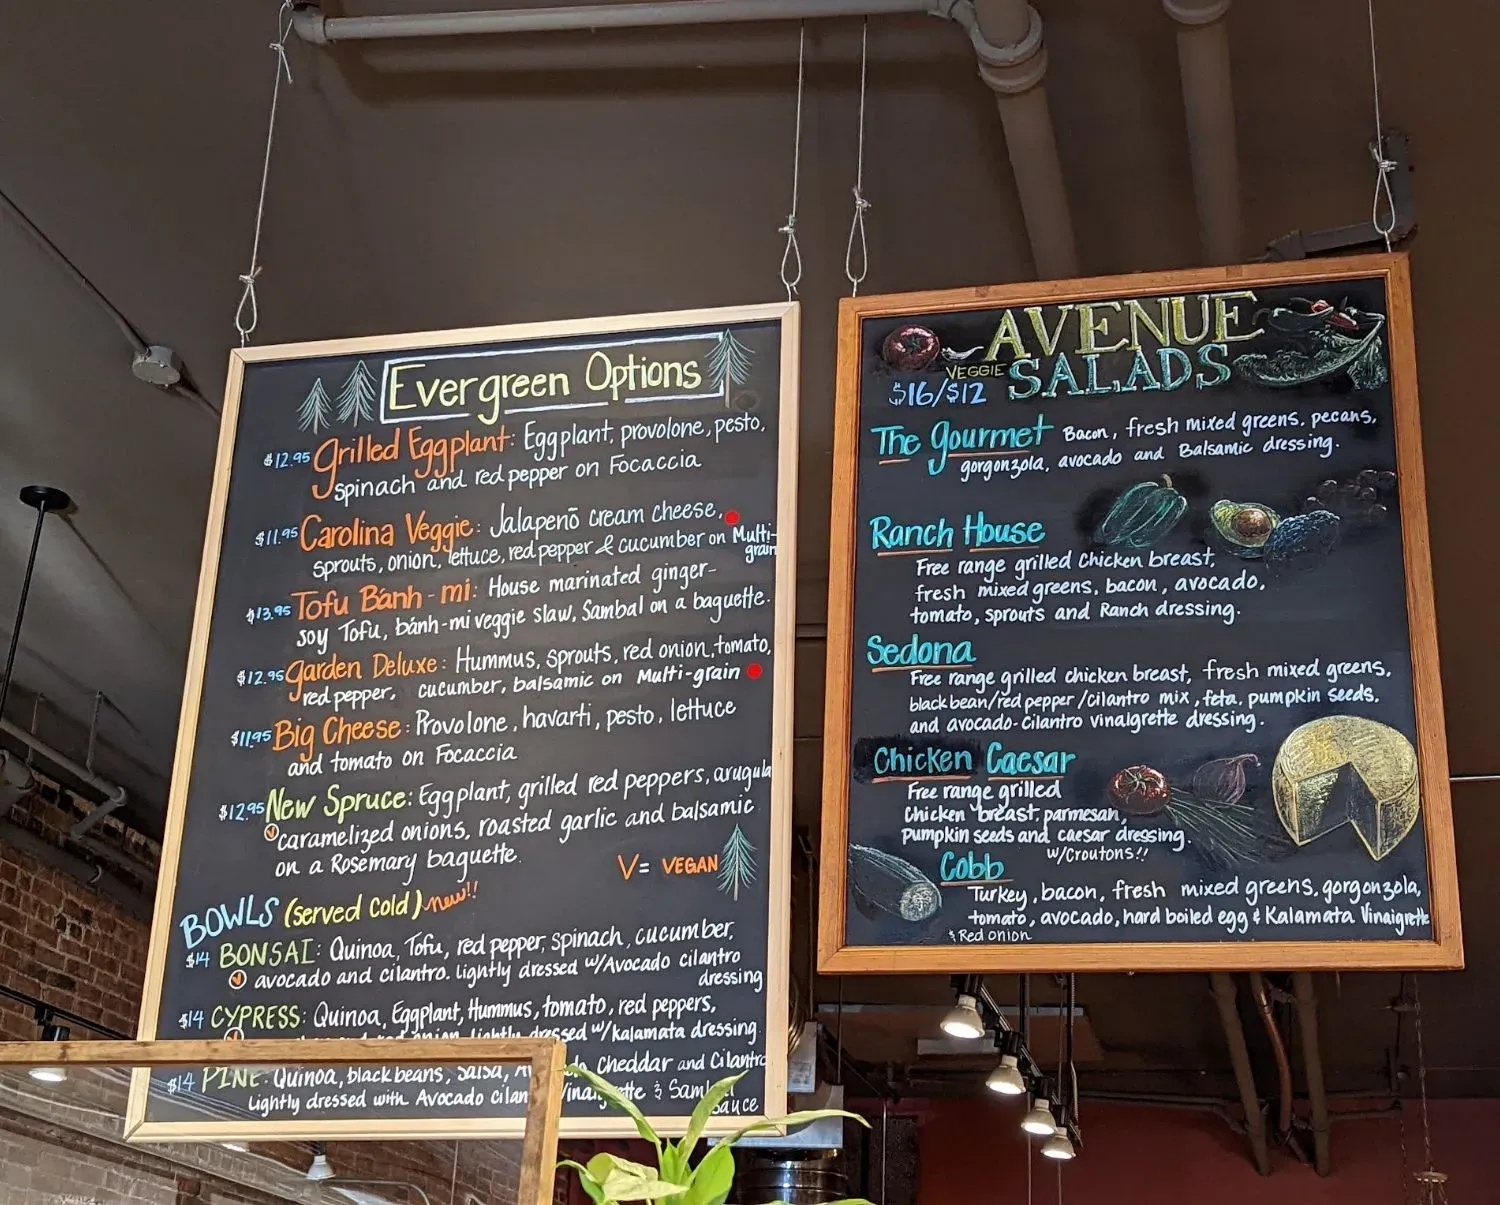 Evergreen Options
$12.95 Grilled Eggplant: Eggplant, provolone, pesto,
spinach and red pepper on Focaccia
$11.95 Carolina Veggie: Jalapeno cream cheese,
sprouts, onion, lettuce, red pepper & cucumber on Multi-
grain
$13.95 Tofu Bánh-mi: House marinated ginger-
soy Tofu, bánh-mi veggie slaw, Sambal on a baguette.
$12.95 Garden Deluxe: Hummus, sprouts, red onion, tomato,
red pepper, cucumber, balsamic on Multi-grain
$11.95 Big Cheese: Provolone, havarti, pesto, lettuce
and tomato on Focaccia
$12.95 New Spruce: Eggplant, grilled red peppers, arugula
V caramelized onions, roasted garlic and balsamic
on a Rosemary baguette.
V = VEGAN
BOWLS (served cold) new!!
$14 BONSAI: Quinoa, Tofu, red pepper, spinach, cucumber,
V avocado and cilantro. lightly dressed w/Avocado cilantro
dressing
$14 CYPRESS: Quinoa, Eggplant, Hummus, tomato, red peppers,
red onion lightly dressed w/kalamata dressing.
$14 PINE: Quinoa, black beans, salsa, cheddar and cilantro
Lightly dressed with Avocado cilan Vinaigrette & Sambal
sauce
AVENUE
VEGGIE SALADS
$16/$12
The Gourmet Bacon, fresh mixed greens, pecans,
gorgonzola, avocado and Balsamic dressing.
Ranch House
Free range grilled chicken breast,
fresh mixed greens, bacon, avocado,
tomato, sprouts and Ranch dressing.
Sedona
Free range grilled chicken breast, fresh mixed greens,
black bean/red pepper/cilantro mix, feta, pumpkin seeds,
and avocado-cilantro vinaigrette dressing.
Chicken Caesar
Free range grilled
Chicken breast, parmesan,
Pumpkin seeds and caesar dressing.
w/Croutons!!
Cobb
Turkey, bacon, fresh mixed greens, gorgonzola,
tomato, avocado, hard boiled egg & Kalamata Vinaigrette
& Red onion